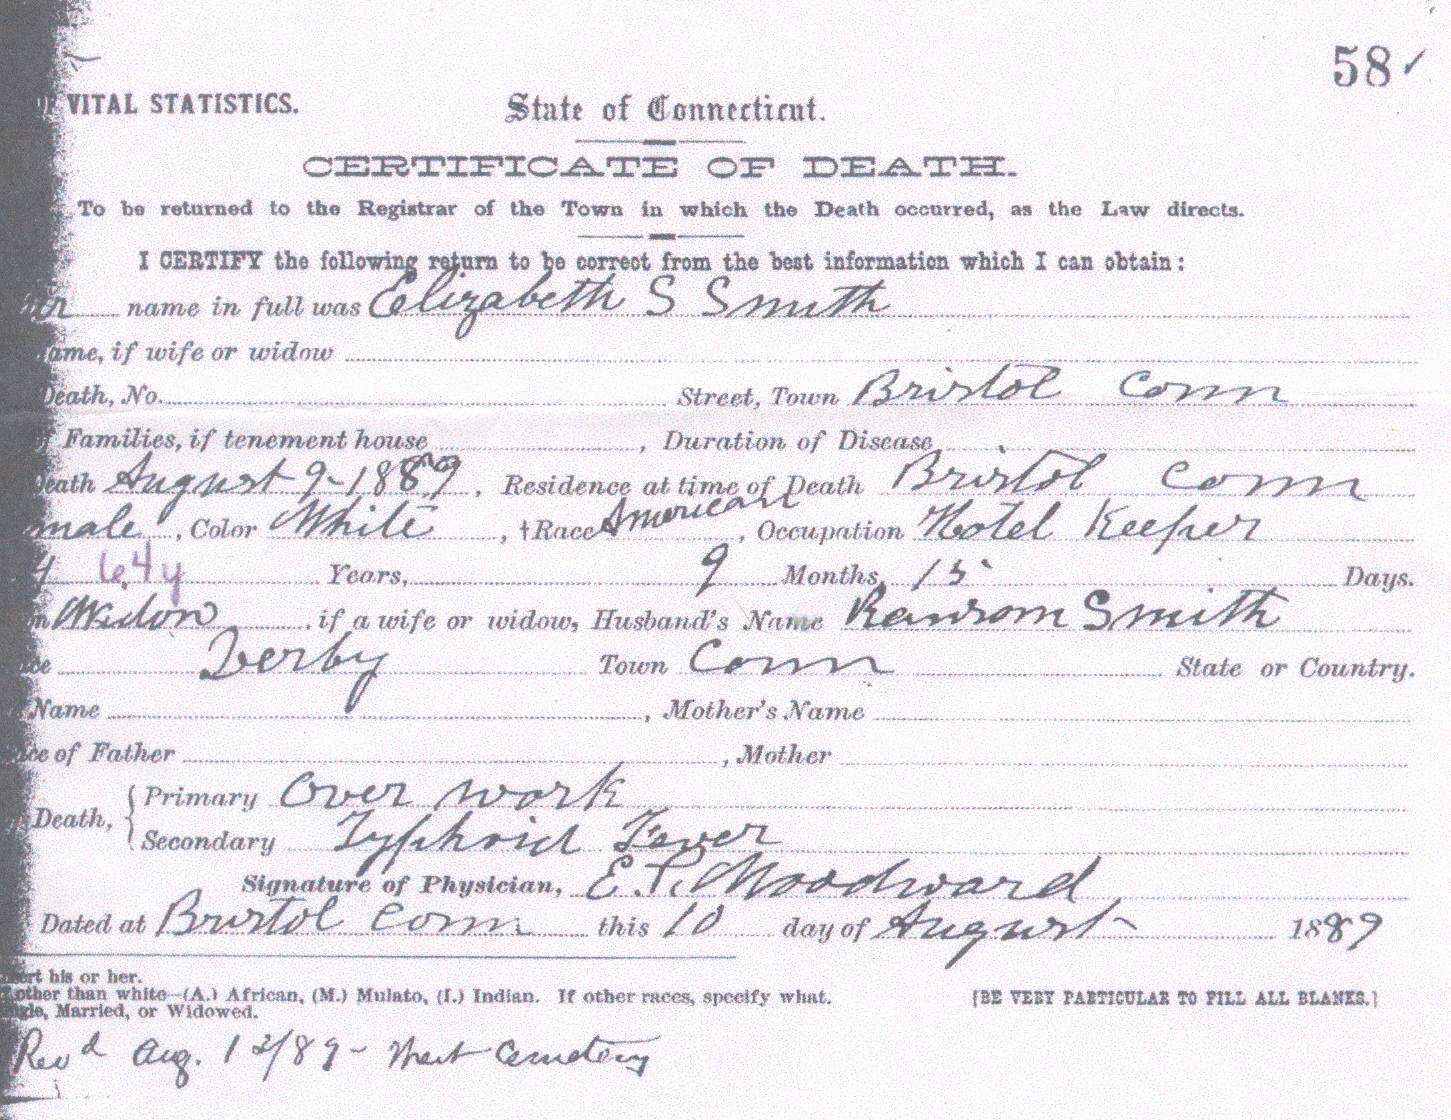 58 ✓
VITAL STATISTICS. State of Connecticut.
CERTIFICATE OF DEATH.
To be returned to the Registrar of the Town in which the Death occurred, as the Law directs.
I CERTIFY the following return to be correct from the best information which I can obtain:
name in full was Elizabeth S Smith
ame, if wife or widow
Death, No. Street, Town Bristol Conn
f Families, if tenement house , Duration of Disease
Death August 9-1889, Residence at time of Death Bristol Conn
male, Color White, †Race American, Occupation Hotel Keeper
4 64y Years, 9 Months, 15 Days.
Widow, if a wife or widow, Husband's Name Ransom Smith
ce Derby Town Conn State or Country.
Name , Mother's Name
ce of Father , Mother
Death, { Primary Over work
Secondary Typhoid Fever
Signature of Physician, E. P. Woodward
Dated at Bristol Conn this 10 day of August 1889
ert his or her.
other than white—(A.) African, (M.) Mulato, (I.) Indian. If other races, specify what. [BE VERY PARTICULAR TO FILL ALL BLANKS.]
ngle, Married, or Widowed.
Recd Aug. 12/89 - West Cemetery